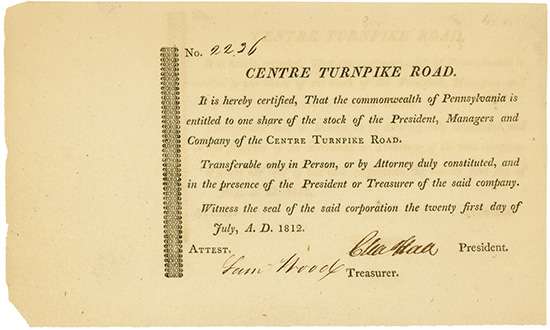 No. 2236
CENTRE TURNPIKE ROAD.
It is hereby certified, That the commonwealth of Pennsylvania is
entitled to one share of the stock of the President, Managers and
Company of the CENTRE TURNPIKE ROAD.
Transferable only in Person, or by Attorney duly constituted, and
in the presence of the President or Treasurer of the said company.
Witness the seal of the said corporation the twenty first day of
July, A. D. 1812.
ATTEST, President.
Saml Wood Treasurer.